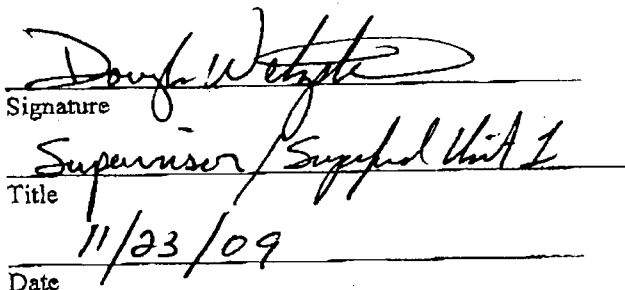 Signature
Supervisor / Superfund Unit 1
Title
11/23/09
Date